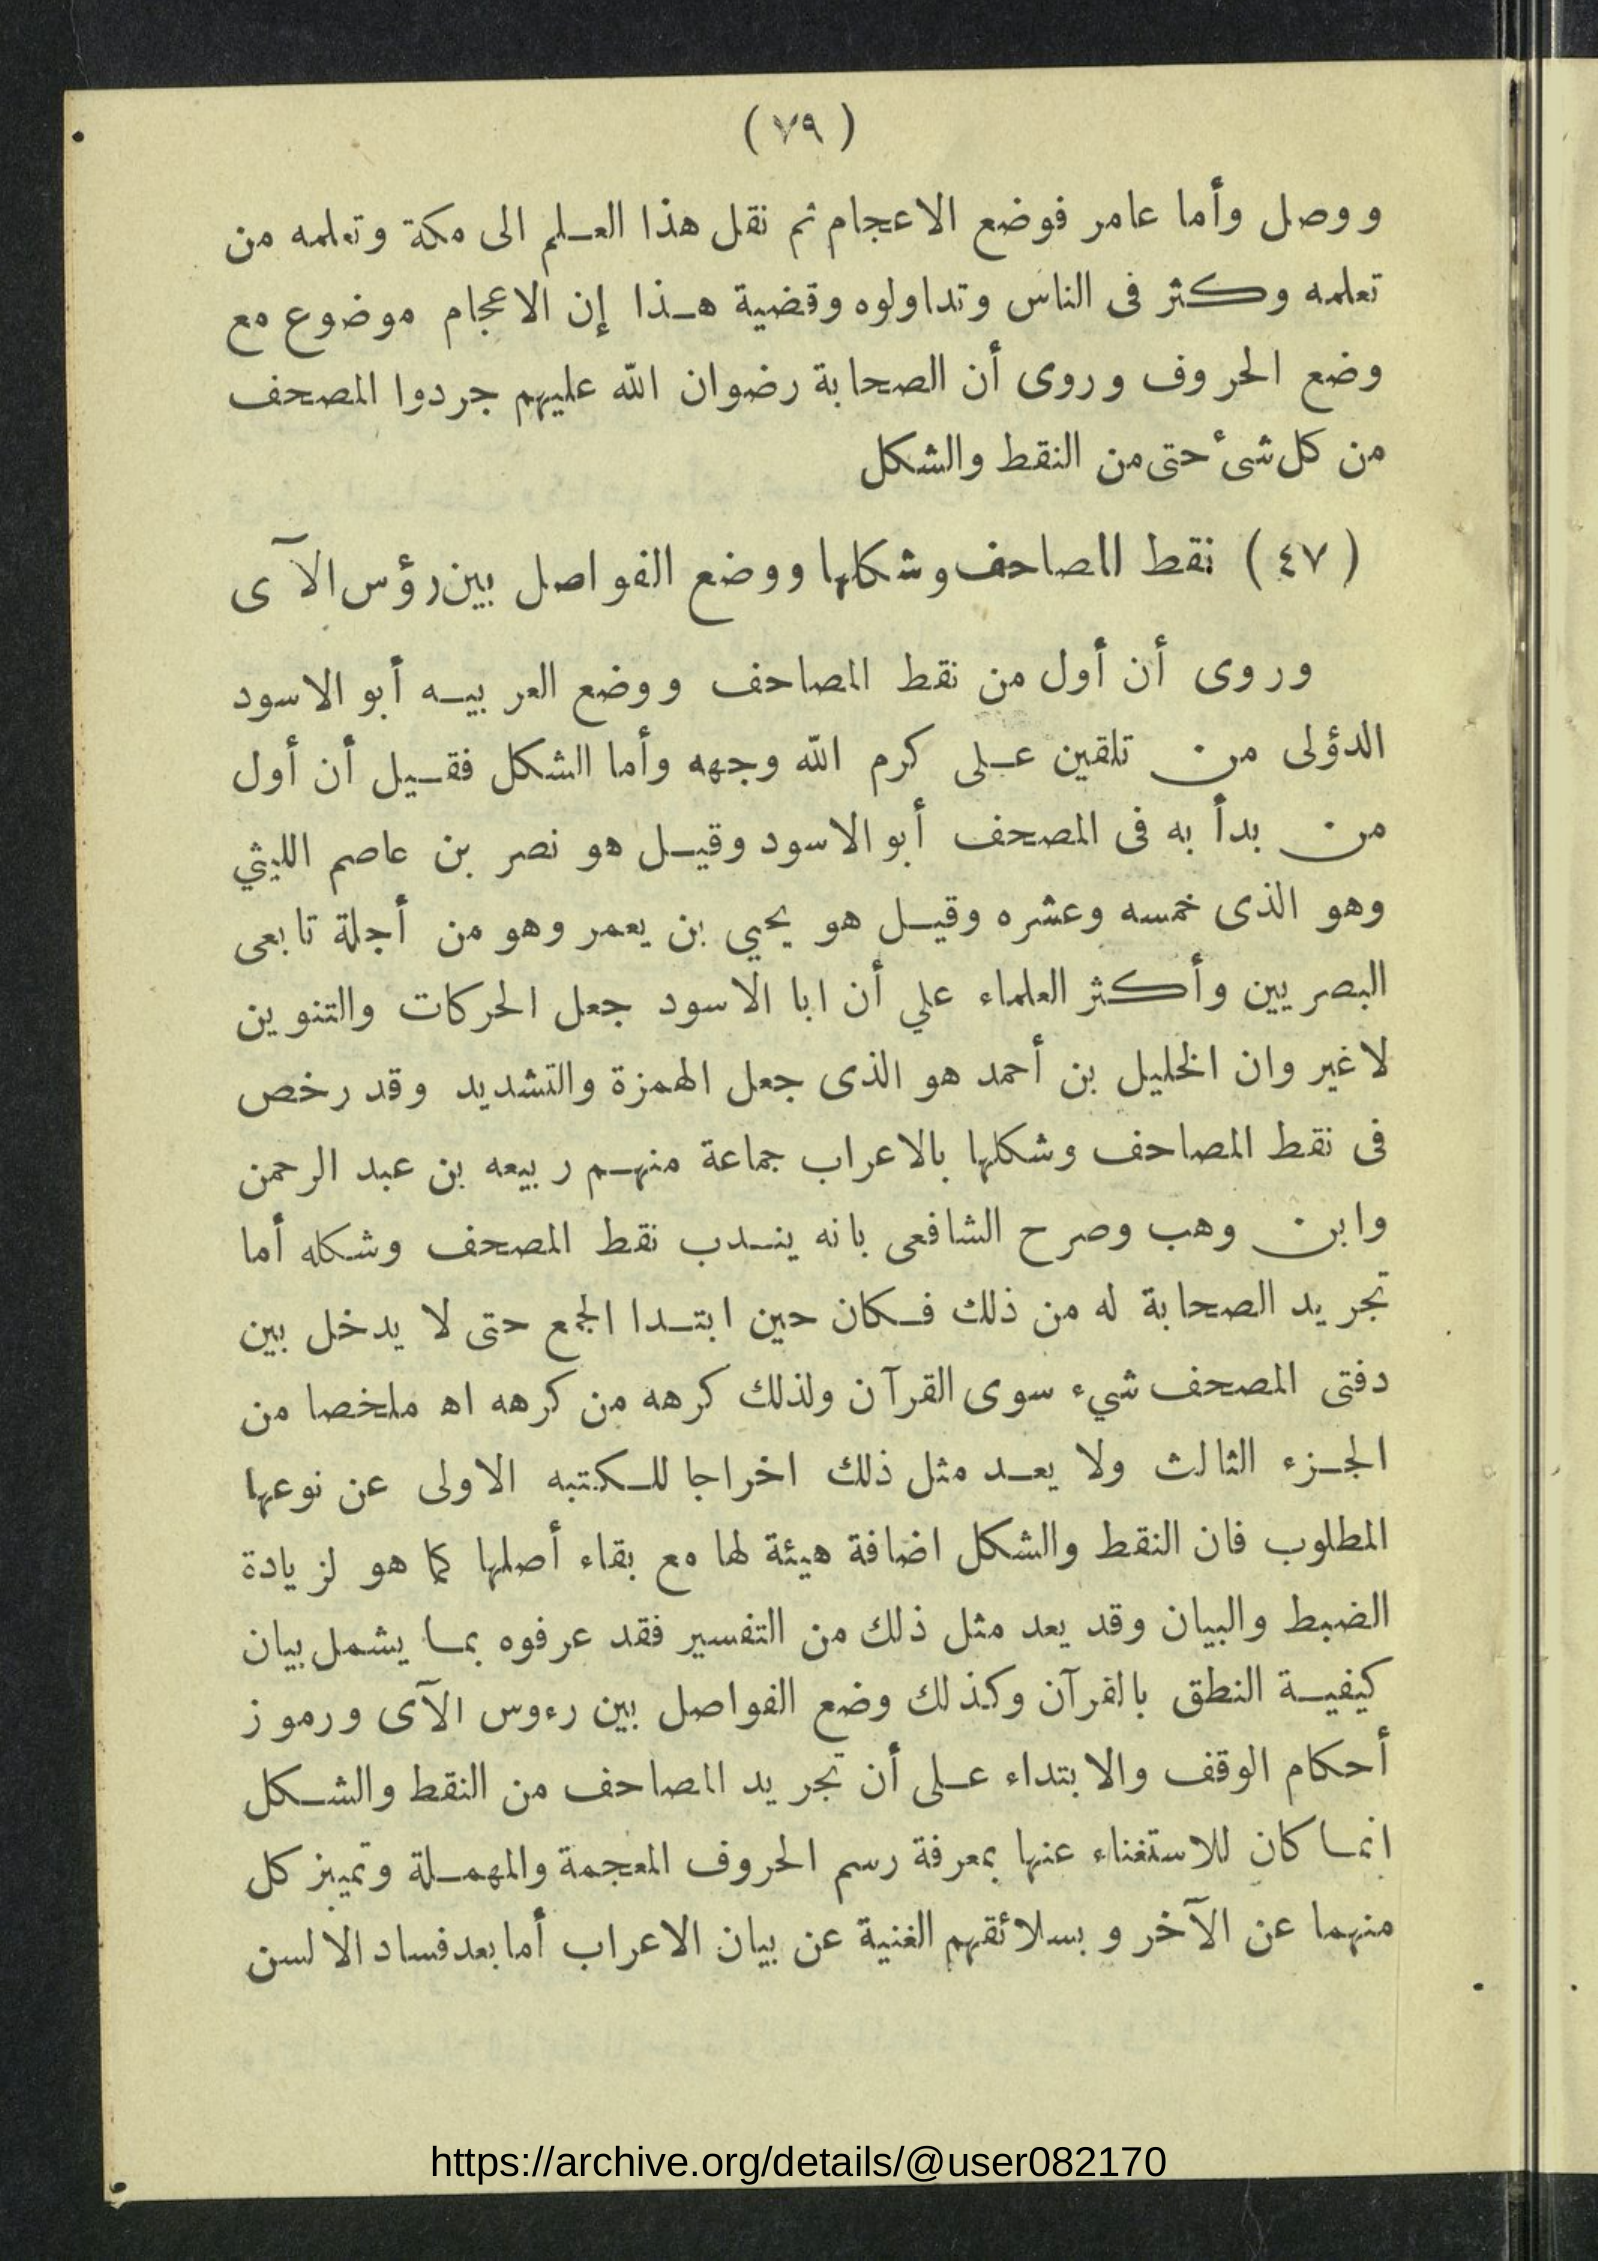 ( ٧٩ )
ووصل وأما عامر فوضع الاعجام ثم نقل هذا العلم الى مكة وتعلمه من
تعلمه وكثر فى الناس وتداولوه وقضية هذا إن الاعجام موضوع مع
وضع الحروف وروى أن الصحابة رضوان الله عليهم جردوا المصحف
من كل شىء حتى من النقط والشكل
( ٤٧ ) نقط المصاحف وشكلها ووضع الفواصل بين رؤس الآى
وروى أن أول من نقط المصاحف ووضع العربيه أبو الاسود
الدؤلى من تلقين على كرم الله وجهه وأما الشكل فقيل أن أول
من بدأ به فى المصحف أبو الاسود وقيل هو نصر بن عاصم الليثي
وهو الذى خمسه وعشره وقيل هو يحيي بن يعمر وهو من أجلة تابعى
البصريين وأكثر العلماء علي أن ابا الاسود جعل الحركات والتنوين
لاغير وان الخليل بن أحمد هو الذى جعل الهمزة والتشديد وقد رخص
فى نقط المصاحف وشكلها بالاعراب جماعة منهم ربيعه بن عبد الرحمن
وابن وهب وصرح الشافعى بانه يندب نقط المصحف وشكله أما
تجريد الصحابة له من ذلك فكان حين ابتدا الجمع حتى لا يدخل بين
دفتى المصحف شيء سوى القرآن ولذلك كرهه من كرهه اه ملخصا من
الجزء الثالث ولا يعد مثل ذلك اخراجا للكتبه الاولى عن نوعها
المطلوب فان النقط والشكل اضافة هيئة لها مع بقاء أصلها كما هو لزيادة
الضبط والبيان وقد يعد مثل ذلك من التفسير فقد عرفوه بما يشمل بيان
كيفية النطق بالقرآن وكذلك وضع الفواصل بين رءوس الآى ورموز
أحكام الوقف والابتداء على أن تجريد المصاحف من النقط والشكل
انما كان للاستغناء عنها بمعرفة رسم الحروف المعجمة والمهملة وتمييز كل
منهما عن الآخر وبسلائقهم الغنية عن بيان الاعراب أما بعد فساد الالسن
https://archive.org/details/@user082170